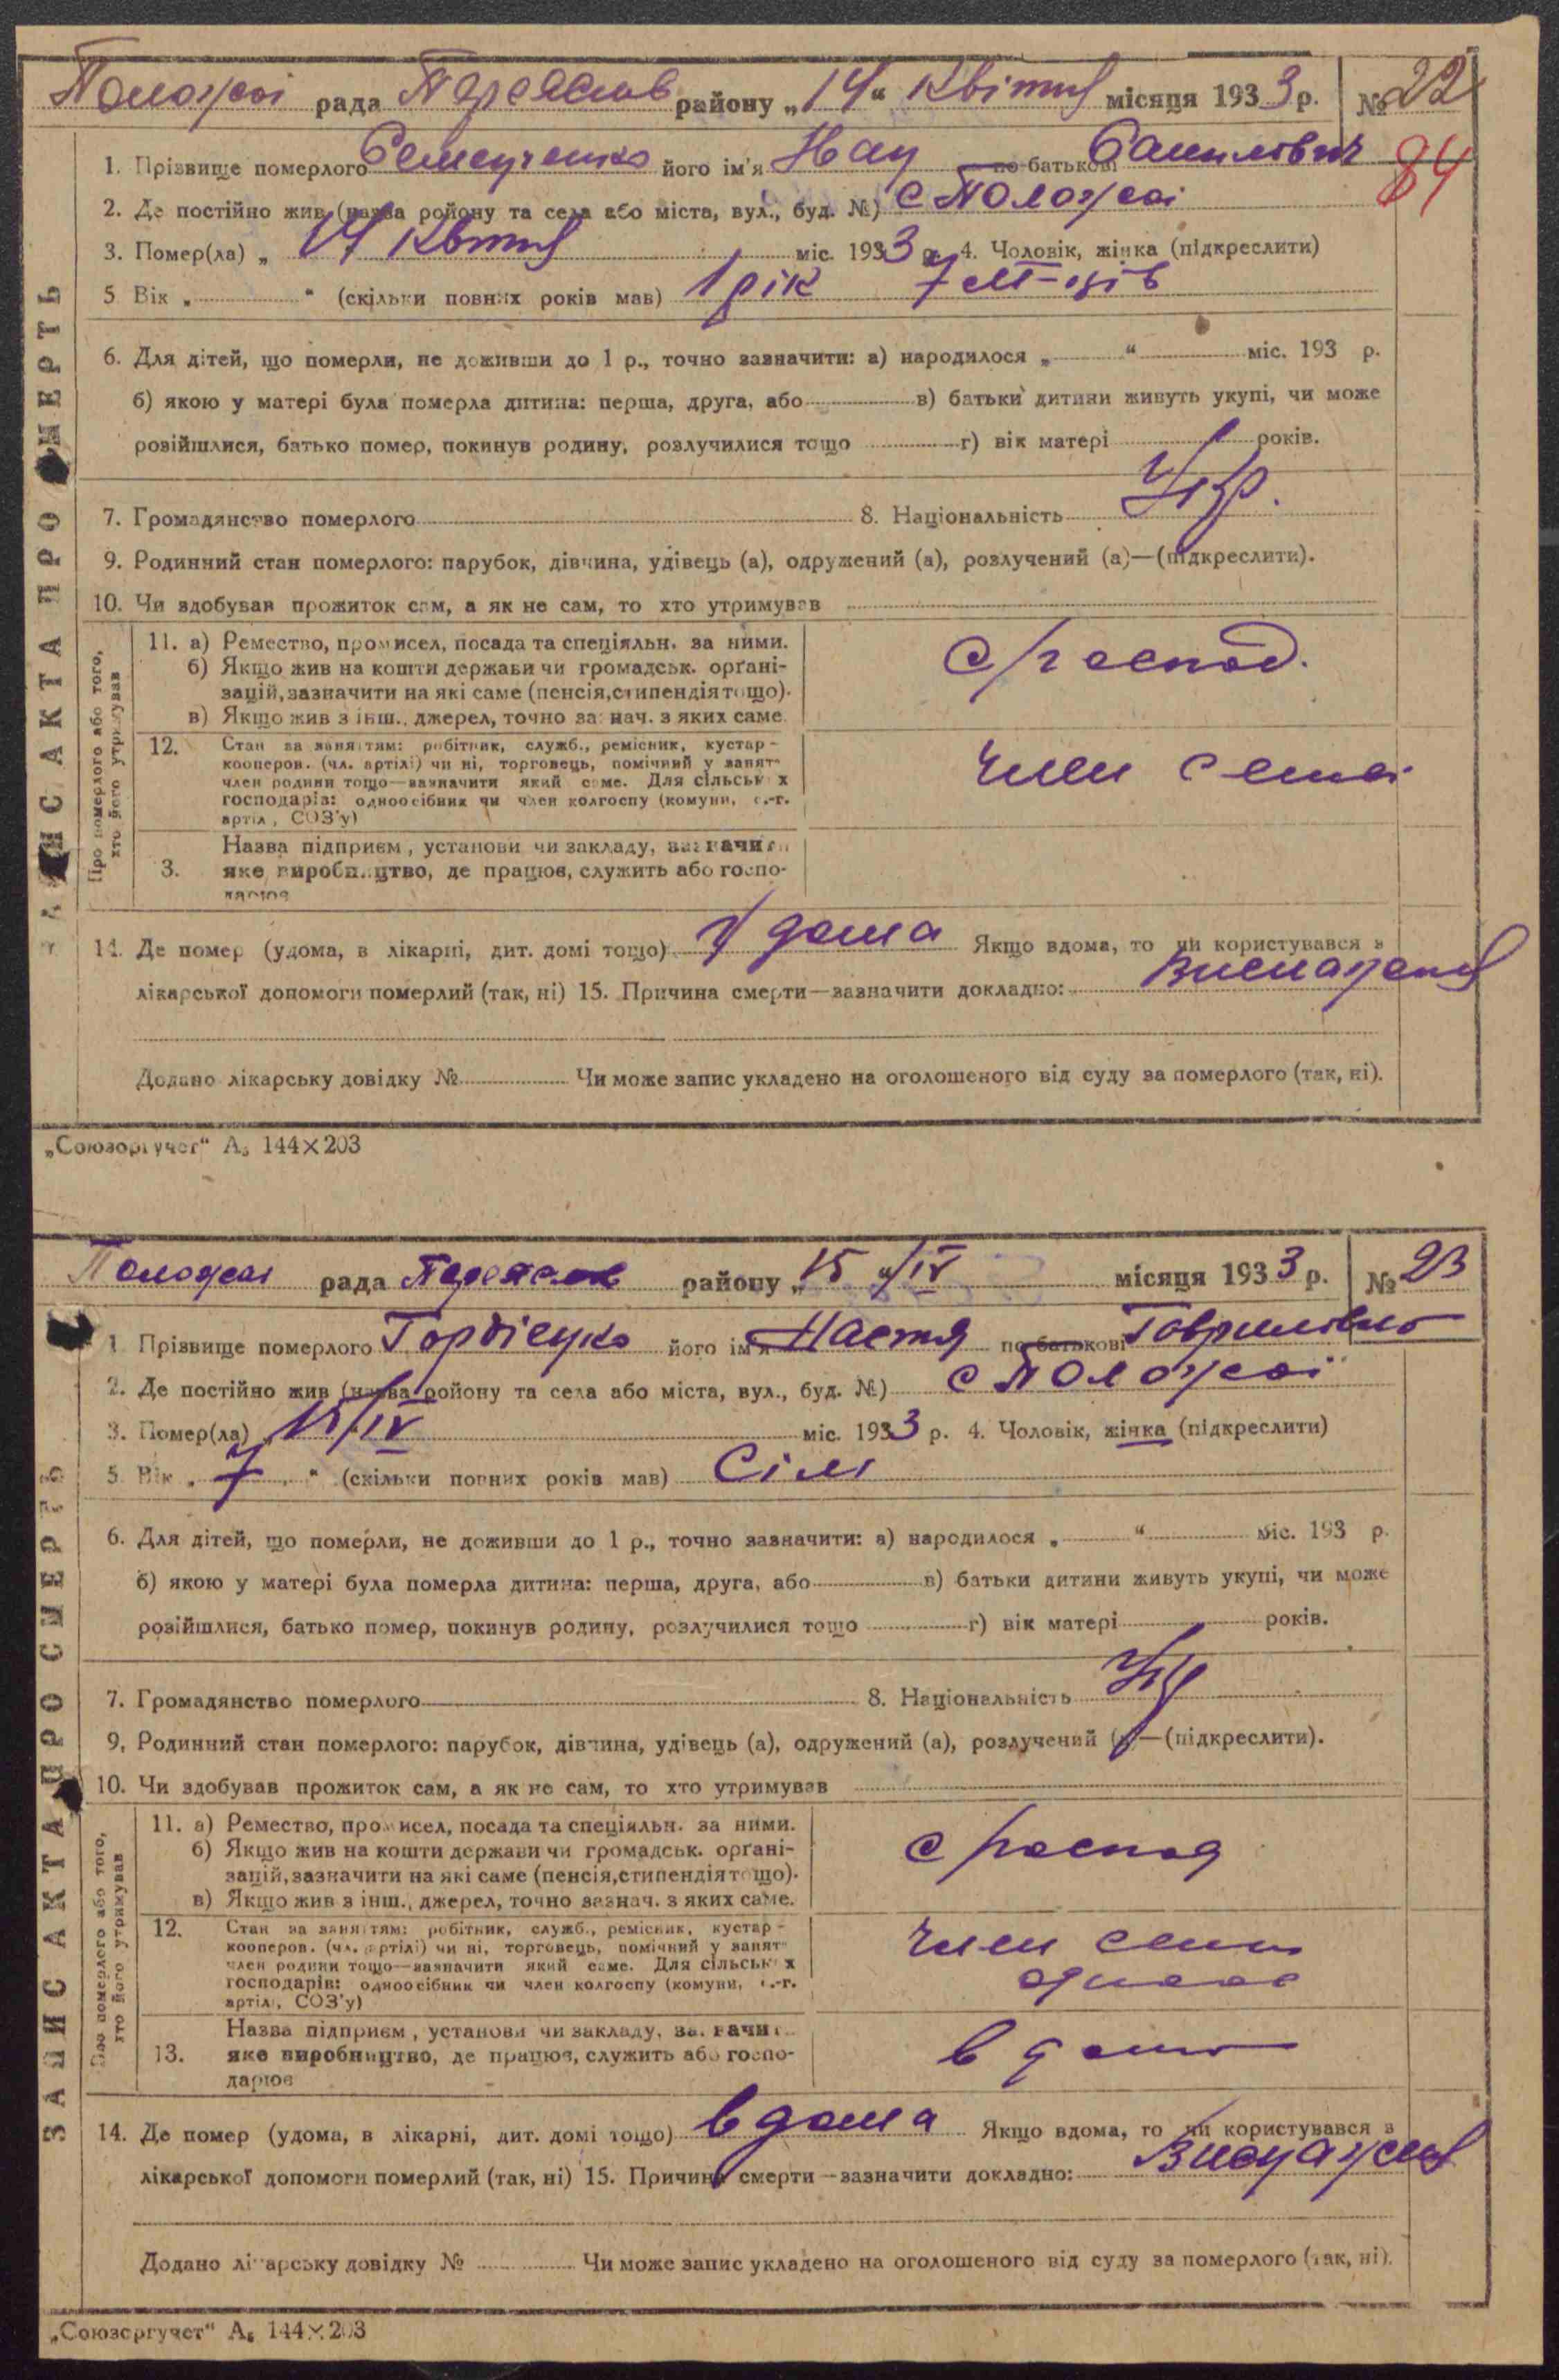 Положаї рада Переяслав району „14“ Квітня місяця 1933 р. № 22
84
1. Прізвище померлого його ім'я по-батькові
2. Де постійно жив (назва ройону та села або міста, вул., буд. №) с Положаї
3. Помер(ла) „ 14 Квітня міс. 1933 р. 4. Чоловік, жінка (підкреслити)
5 Вік „ “ (скільки повних років мав) 1 рік 7 м-ців
6. Для дітей, що померли, не доживши до 1 р., точно зазначити: а) народилося „ “ міс. 193 р.
б) якою у матері була померла дитина: перша, друга, або в) батьки дитини живуть укупі, чи може
розійшлися, батько помер, покинув родину, розлучилися тощо г) вік матері років.
7. Громадянство померлого 8. Національність Укр.
9. Родинний стан померлого: парубок, дівчина, удівець (а), одружений (а), розлучений (а)—(підкреслити).
10. Чи здобував прожиток сам, а як не сам, то хто утримував
ЗАПИС АКТА ПРО СМЕРТЬ
Про померлого або того,
хто його утримував
11. а) Ремество, промисел, посада та спеціяльн. за ними.
б) Якщо жив на кошти держави чи громадськ. орґані-
зацій, зазначити на які саме (пенсія, стипендія тощо).
в) Якщо жив з інш., джерел, точно зазнач. з яких саме.
с/господ.
12. Стан за заняттям: робітник, служб., ремісник, кустар -
кооперов. (чл. артілі) чи ні, торговець, помічний у занят-
член родини тощо—зазначити який саме. Для сільських
господарів: одноосібник чи член колгоспу (комуни, с.-г.
артіл, СОЗ'у)
член семї
3. Назва підприєм, установи чи закладу, зазначити
яке виробництво, де працює, служить або госпо-
дарює
14. Де помер (удома, в лікарні, дит. домі тощо) дома Якщо вдома, то чи користувався з
лікарської допомоги померлий (так, ні) 15. Причина смерти—зазначити докладно: Виснаження
Додано лікарську довідку № Чи може запис укладено на оголошеного від суду за померлого (так, ні).
„Союзоргучет“ А₅ 144×203
Положаї рада Переяслав району „ 15 /IV місяця 1933 р. № 23
1 Прізвище померлого Гордієнко його ім'я Настя по-батькові Гавриловна
2. Де постійно жив (назва ройону та села або міста, вул., буд. №) с Положаї
3. Помер(ла) „ 15/IV міс. 1933 р. 4. Чоловік, жінка (підкреслити)
5 Вік „ 7 “ (скільки повних років мав) Сім
6. Для дітей, що померли, не доживши до 1 р., точно зазначити: а) народилося „ “ міс. 193 р.
б) якою у матері була померла дитина: перша, друга, або в) батьки дитини живуть укупі, чи може
розійшлися, батько помер, покинув родину, розлучилися тощо г) вік матері років.
7. Громадянство померлого 8. Національність Укр
9. Родинний стан померлого: парубок, дівчина, удівець (а), одружений (а), розлучений (а)—(підкреслити).
10. Чи здобував прожиток сам, а як не сам, то хто утримував
ЗАПИС АКТА ПРО СМЕРТЬ
Про померлого або того,
хто його утримував
11. а) Ремество, промисел, посада та спеціяльн. за ними.
б) Якщо жив на кошти держави чи громадськ. орґані-
зацій, зазначити на які саме (пенсія, стипендія тощо).
в) Якщо жив з інш., джерел, точно зазнач. з яких саме.
с/господ
12. Стан за заняттям: робітник, служб., ремісник, кустар -
кооперов. (чл. артілі) чи ні, торговець, помічний у занят-
член родини тощо—зазначити який саме. Для сільських
господарів: одноосібник чи член колгоспу (комуни, с.-г.
артіл, СОЗ'у)
член семї
13. Назва підприєм, установи чи закладу, зазначити
яке виробництво, де працює, служить або госпо-
дарює
14. Де помер (удома, в лікарні, дит. домі тощо) вдома Якщо вдома, то чи користувався з
лікарської допомоги померлий (так, ні) 15. Причина смерти—зазначити докладно: Виснаження
Додано лікарську довідку № Чи може запис укладено на оголошеного від суду за померлого (так, ні).
„Союзоргучет“ А₅ 144×203